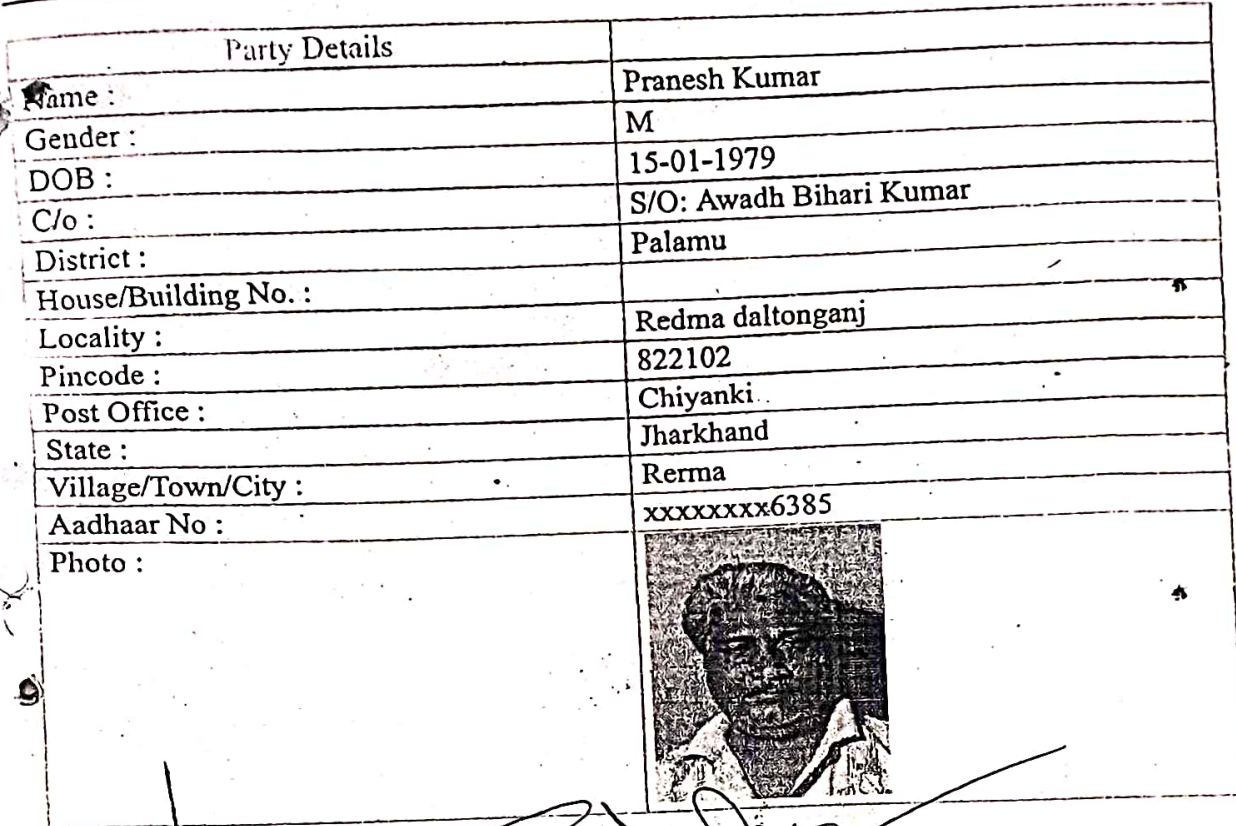 Party Details
Name : Pranesh Kumar
Gender : M
DOB : 15-01-1979
C/o : S/O: Awadh Bihari Kumar
District : Palamu
House/Building No. :
Locality : Redma daltonganj
Pincode : 822102
Post Office : Chiyanki
State : Jharkhand
Village/Town/City : Rerma
Aadhaar No : xxxxxxxx6385
Photo :